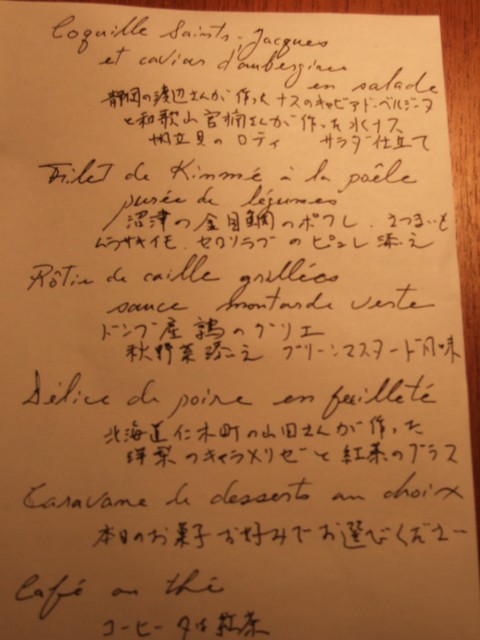 Coquille Saints-Jacques
et caviar d'aubergines
en salade
静岡の渡辺さんが作った ナスのキャビア・ド・ベルジーヌ
と和歌山 宮楠さんが作った水ナス
帆立貝のロティ サラダ仕立て
Filet de Kinmé à la poêle
purée de légumes
沼津の金目鯛のポワレ、さつまいも
ムラサキイモ、セロリラブのピュレ添え
Rôtie de caille grillées
sauce moutarde verte
ドンブ産 鶉のグリエ
秋野菜添え グリーンマスタード風味
Délice de poire en feuilleté
北海道仁木町の山田さんが作った
洋梨のキャラメリゼと紅茶のグラス
Caravane de desserts au choix
本日のお菓子お好みでお選びください
Café ou thé
コーヒー又は紅茶